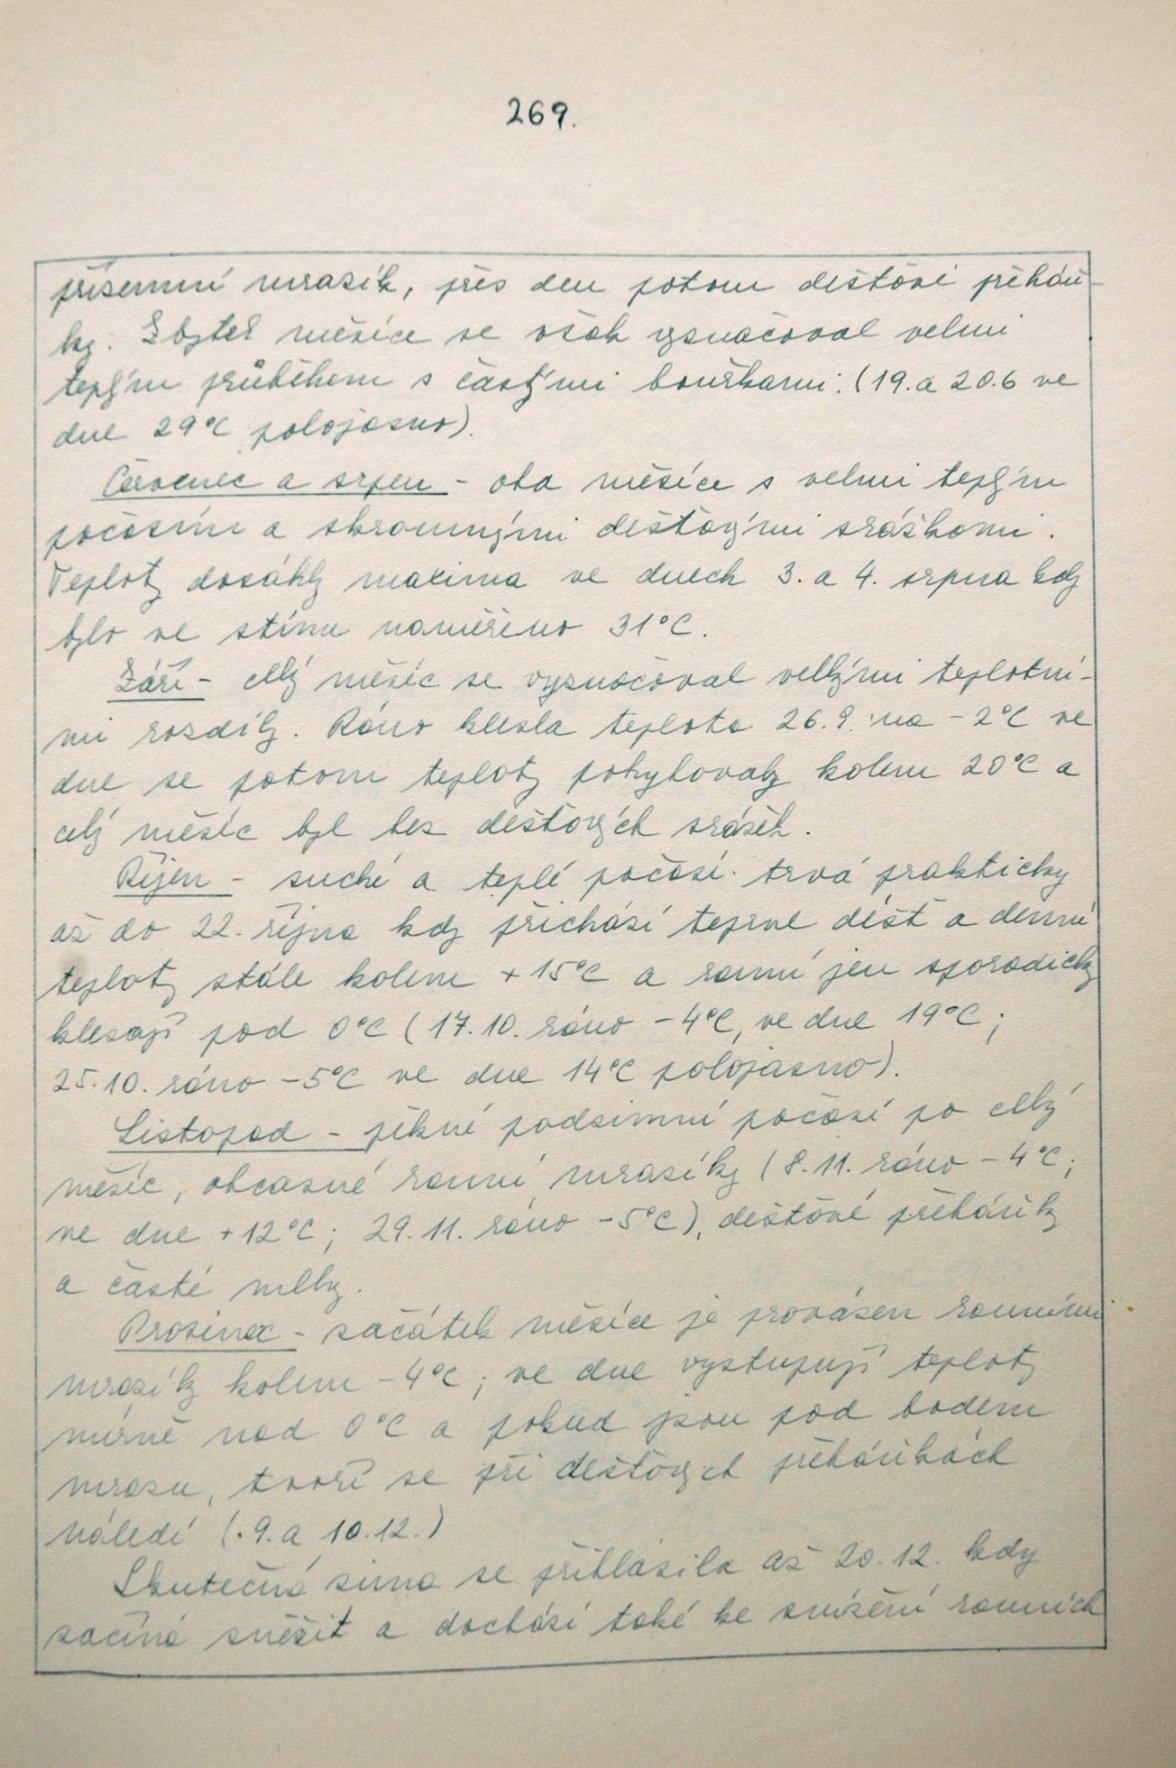 269.
přízemní mrazík, přes den potom dešťové přeháň-
ky. Zbytek měsíce se však vyznačoval velmi
teplým průběhem s častými bouřkami. (19. a 20.6 ve
dne 29°C polojasno).
Červenec a srpen - oba měsíce s velmi teplým
počasím a skromnými dešťovými srážkami.
Teploty dosáhly maxima ve dnech 3. a 4. srpna kdy
bylo ve stínu naměřeno 31°C.
Září - celý měsíc se vyznačoval velkými teplotní-
mi rozdíly. Ráno klesla teplota 26.9. na -2°C ve
dne se potom teploty pohybovaly kolem 20°C a
celý měsíc byl bez dešťových srážek.
Říjen - suché a teplé počasí trvá prakticky
až do 22. října kdy přichází teprve déšť a denní
teploty stále kolem +15°C a ranní jen sporadicky
klesají pod 0°C (17.10. ráno -4°C, ve dne 19°C;
25.10. ráno -5°C ve dne 14°C polojasno).
Listopad - pěkné podzimní počasí po celý
měsíc, občasné ranní mrazíky (8.11. ráno -4°C;
ve dne +12°C; 29.11. ráno -5°C), dešťové přeháňky
a časté mlhy.
Prosinec - začátek měsíce je provázen ranními
mrazíky kolem -4°C; ve dne vystupují teploty
mírně nad 0°C a pokud jsou pod bodem
mrazu, tvoří se při dešťových přeháňkách
náledí (.9. a 10.12.)
Skutečná zima se přihlásila až 20.12. kdy
začíná sněžit a dochází také ke snížení ranních